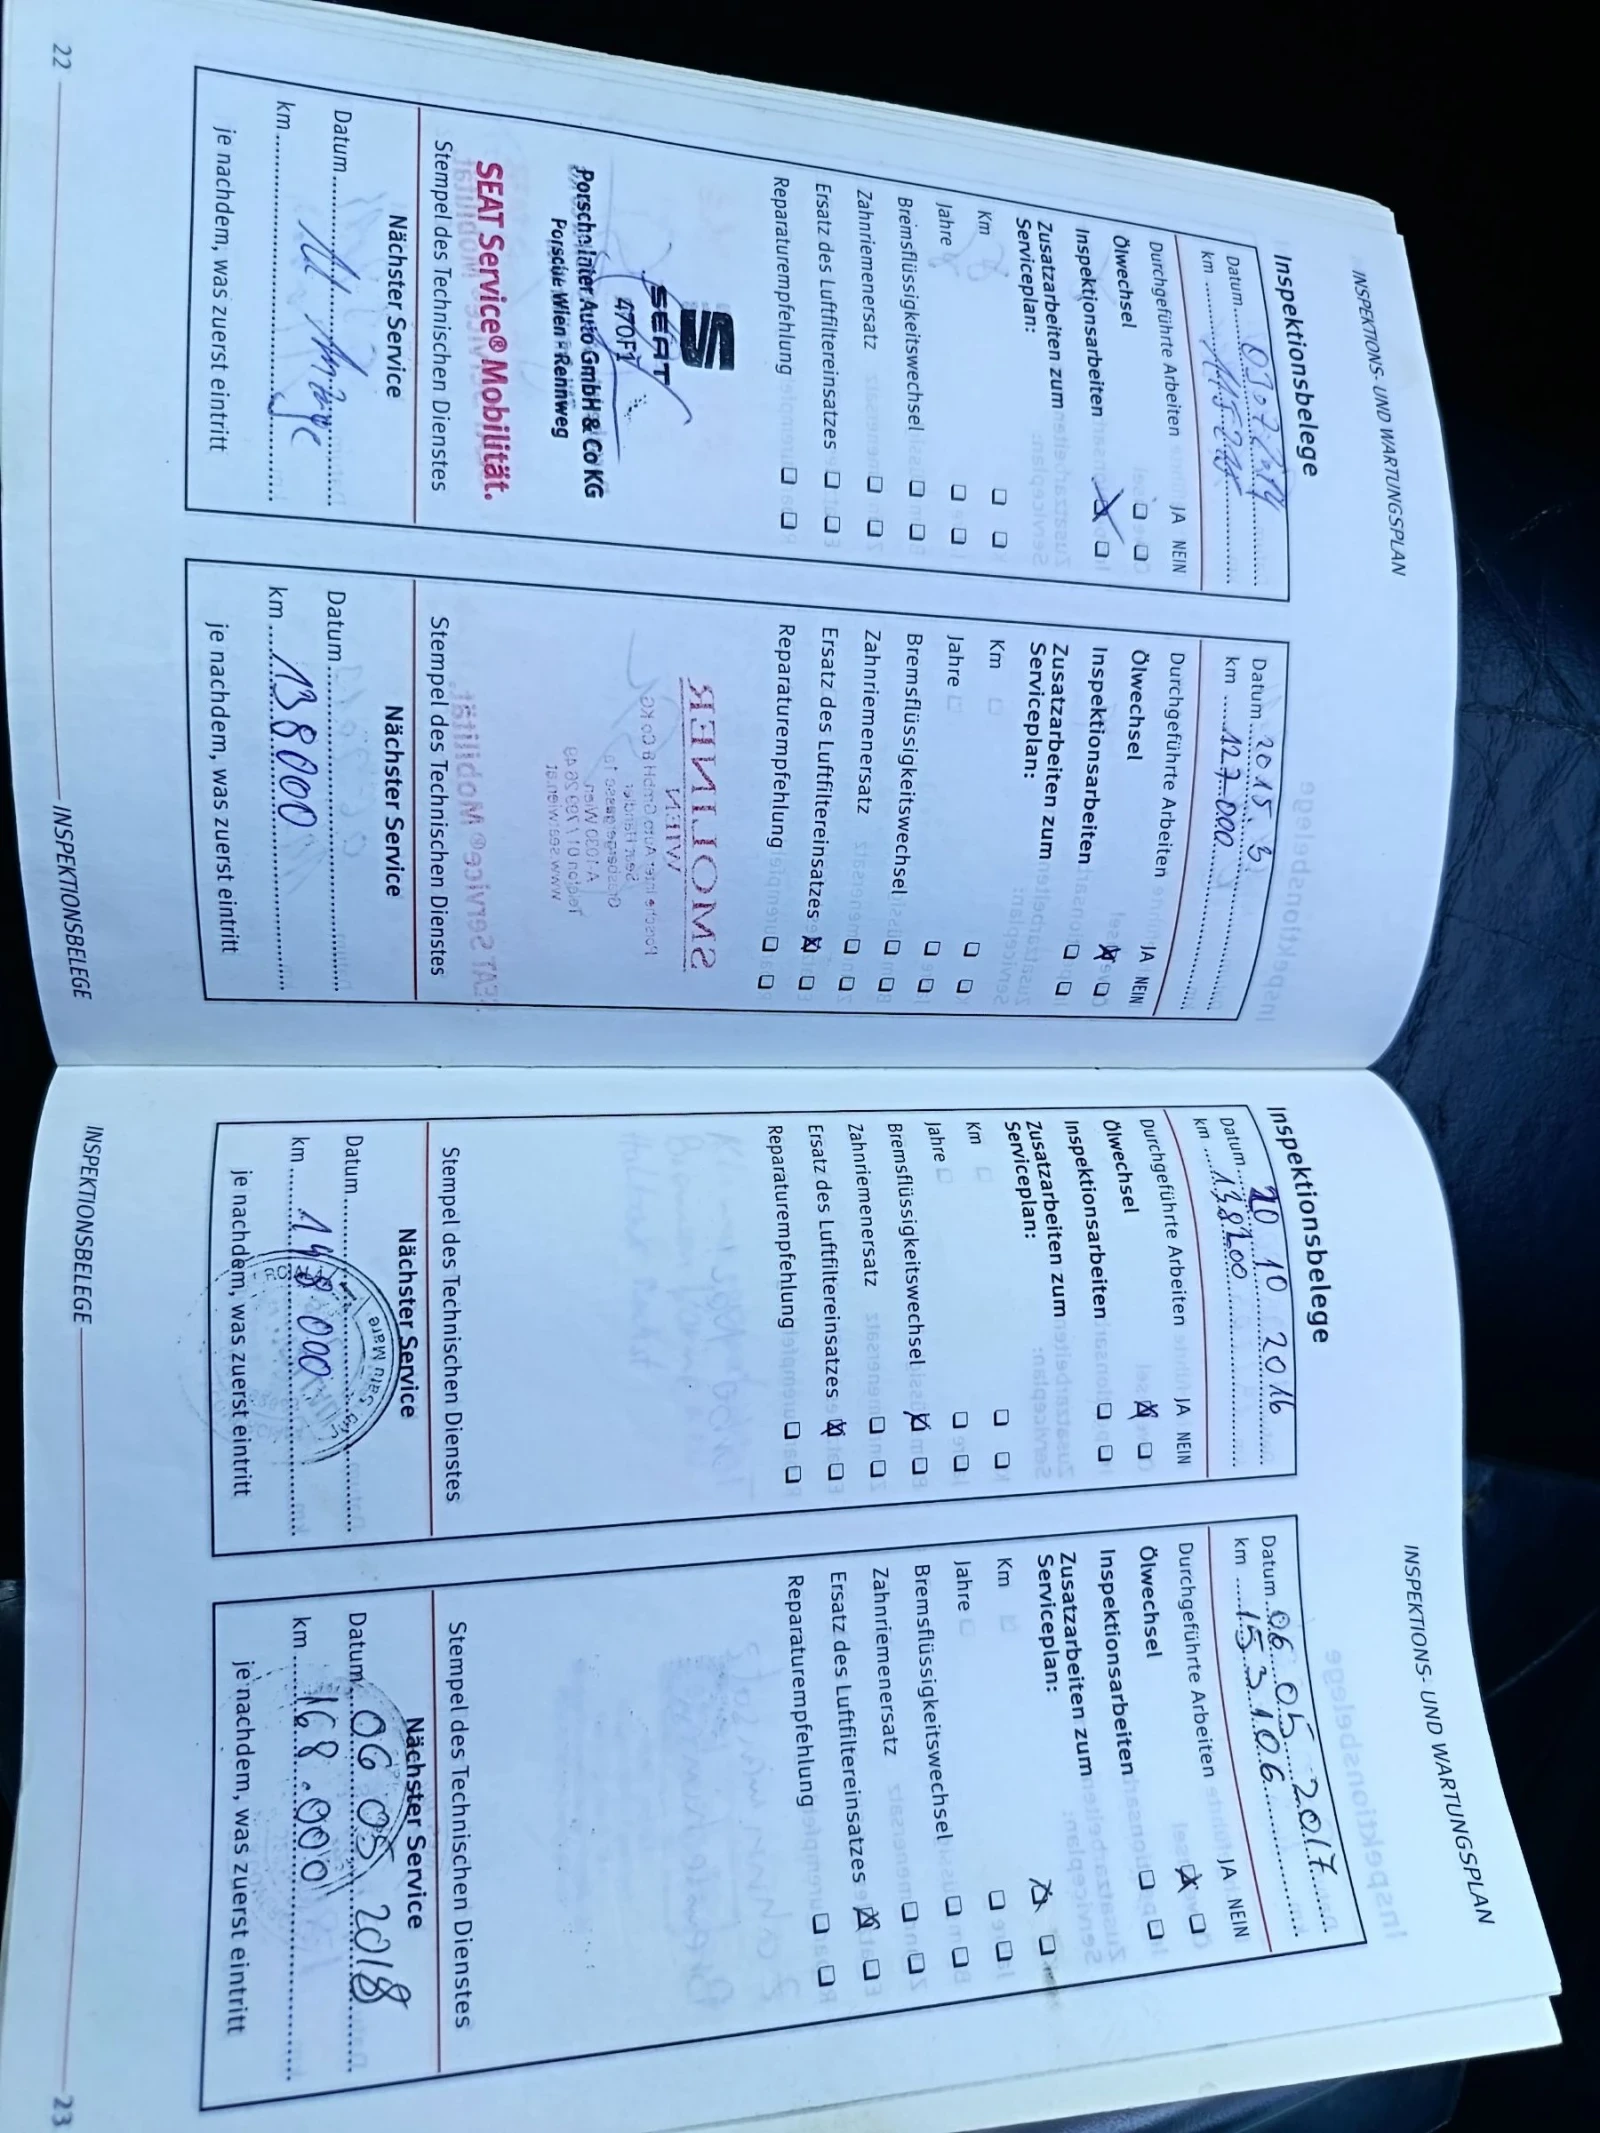 INSPEKTIONS- UND WARTUNGSPLAN
Inspektionsbelege
Datum
km
Durchgeführte Arbeiten JA NEIN
Ölwechsel
Inspektionsarbeiten
Zusatzarbeiten zum
Serviceplan:
Km
Jahre
Bremsflüssigkeitswechsel
Zahnriemenersatz
Ersatz des Luftfiltereinsatzes
Reparaturempfehlung
SEAT
470F1
Porsche Inter Auto GmbH & Co KG
Porsche Wien - Rennweg
SEAT Service® Mobilität.
Stempel des Technischen Dienstes
Nächster Service
Datum
km
je nachdem, was zuerst eintritt
22
Datum 2015. 3
km 127.000
Durchgeführte Arbeiten JA NEIN
Ölwechsel
Inspektionsarbeiten
Zusatzarbeiten zum
Serviceplan:
Km
Jahre
Bremsflüssigkeitswechsel
Zahnriemenersatz
Ersatz des Luftfiltereinsatzes
Reparaturempfehlung
Stempel des Technischen Dienstes
Nächster Service
Datum
km 138000
je nachdem, was zuerst eintritt
INSPEKTIONSBELEGE
Inspektionsbelege
Datum 10 10 2016
km 138200
Durchgeführte Arbeiten JA NEIN
Ölwechsel
Inspektionsarbeiten
Zusatzarbeiten zum
Serviceplan:
Km
Jahre
Bremsflüssigkeitswechsel
Zahnriemenersatz
Ersatz des Luftfiltereinsatzes
Reparaturempfehlung
Stempel des Technischen Dienstes
Nächster Service
Datum
km 148000
je nachdem, was zuerst eintritt
Satu Mare
INSPEKTIONSBELEGE
INSPEKTIONS- UND WARTUNGSPLAN
Datum 06 05 2017
km 153106
Durchgeführte Arbeiten JA NEIN
Ölwechsel
Inspektionsarbeiten
Zusatzarbeiten zum
Serviceplan:
Km
Jahre
Bremsflüssigkeitswechsel
Zahnriemenersatz
Ersatz des Luftfiltereinsatzes
Reparaturempfehlung
Stempel des Technischen Dienstes
Nächster Service
Datum 06 05 2018
km 168.000
je nachdem, was zuerst eintritt
23